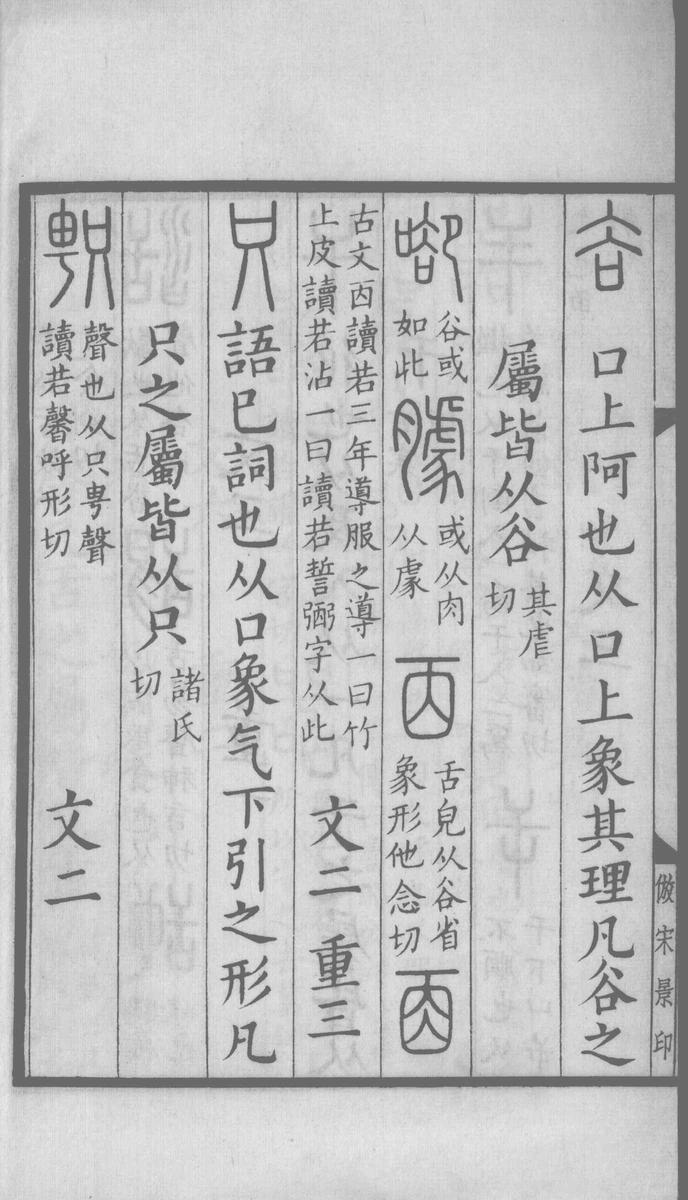 𧮫口上阿也从口上象其理凡谷之
屬皆从谷其虐切
㗲谷或如此臄或从肉从䖍㐁舌皃从谷省象形他念切㐁
古文㐁讀若三年導服之導一曰竹上皮讀若沾一曰讀若誓弼字从此文二重三
只語已詞也从口象气下引之形凡
只之屬皆从只諸氏切
𠮱聲也从只甹聲讀若馨呼形切文二
倣宋景印